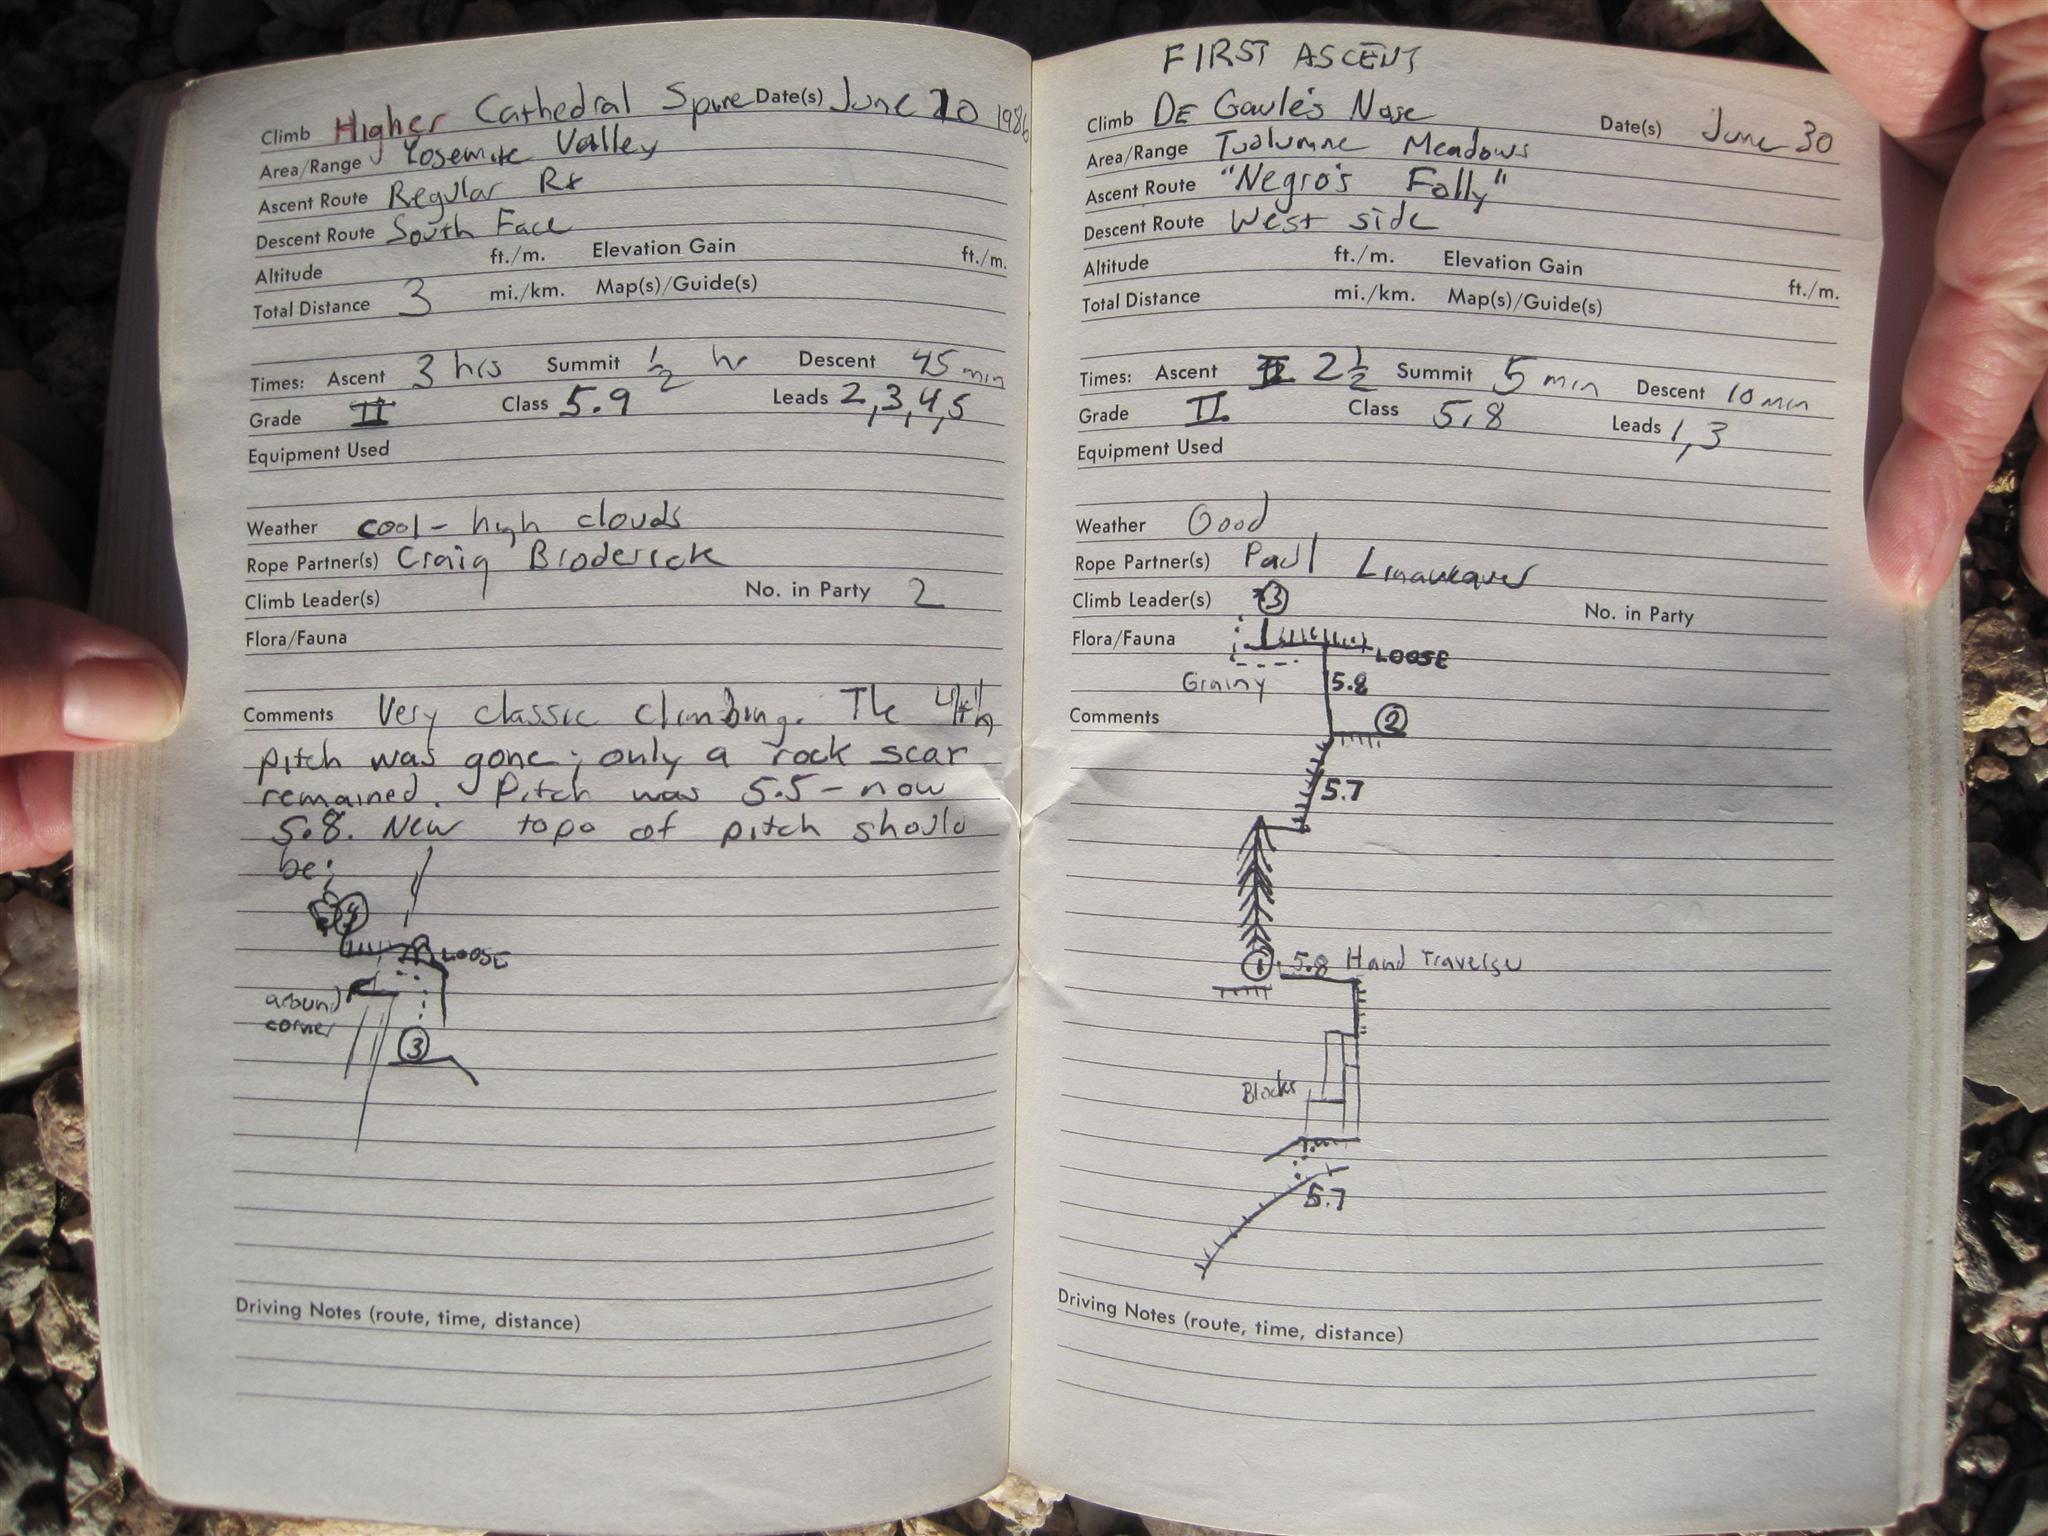 Climb Higher Cathedral Spire Date(s) June 20 1986
Area/Range Yosemite Valley
Ascent Route Regular Rt
Descent Route South Face
Altitude ft./m. Elevation Gain ft./m.
Total Distance 3 mi./km. Map(s)/Guide(s)
Times: Ascent 3 hrs Summit 1/2 hr Descent 45 min
Grade II Class 5.9 Leads 2,3,4,5
Equipment Used
Weather cool - high clouds
Rope Partner(s) Craig Broderick
Climb Leader(s) No. in Party 2
Flora/Fauna
Comments Very classic climbing. The 4th
pitch was gone; only a rock scar
remained. Pitch was 5.5 - now
5.8. New topo of pitch should
be:
4
LOOSE
around
corner
3
Driving Notes (route, time, distance)
FIRST ASCENT
Climb De Gaule's Nose Date(s) June 30
Area/Range Tuolumne Meadows
Ascent Route "Negro's Folly"
Descent Route West side
Altitude ft./m. Elevation Gain ft./m.
Total Distance mi./km. Map(s)/Guide(s)
Times: Ascent 2 1/2 Summit 5 min Descent 10 min
Grade II Class 5.8 Leads 1,3
Equipment Used
Weather Good
Rope Partner(s) Paul Linaweaver
Climb Leader(s) No. in Party
3
Flora/Fauna
LOOSE
Grainy 5.8
Comments
2
5.7
1 5.8 Hand Traverse
Blocks
5.7
Driving Notes (route, time, distance)